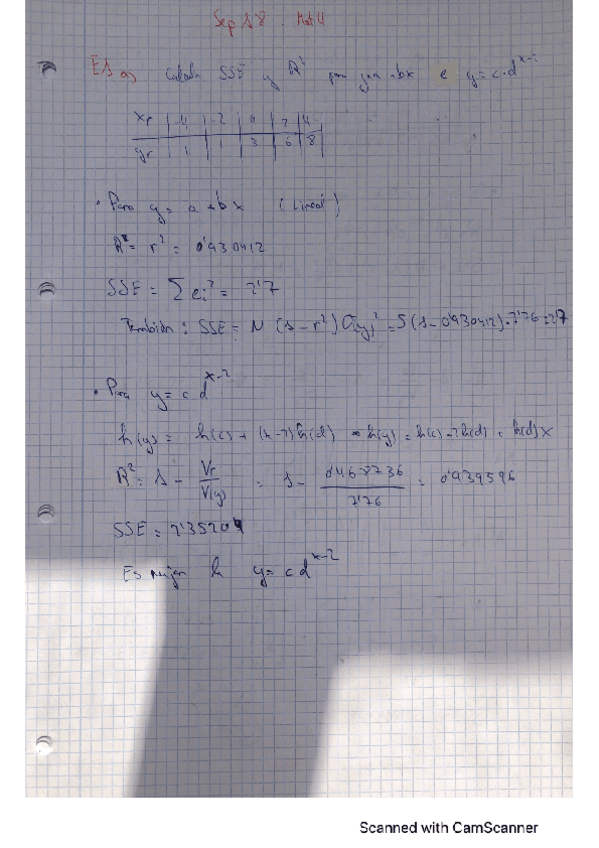 Sep 18 Mat 4
E1 a) Calcula SSE y R² para y=a+bx e y=c·d^x-2
xi | -4 | -2 | 0 | 2 | 4
yi | 1 | 1 | 3 | 6 | 8
• Para y= a+bx (Lineal)
R²= r² = 0'930412
SSE = Σei² = 2'7
También: SSE= N (1-r²) σ(y)² = 5 (1-0'930412)·7'76 = 2'7
• Para y= c d^x-2
ln(y) = ln(c) + (x-2) ln(d) → ln(y) = ln(c) - 2ln(d) + ln(d)x
R² = 1 - Vr/V(y) = 1 - 0'468736/7'76 = 0'939596
SSE = 2'35204
Es mejor la y= c d^x-2
Scanned with CamScanner